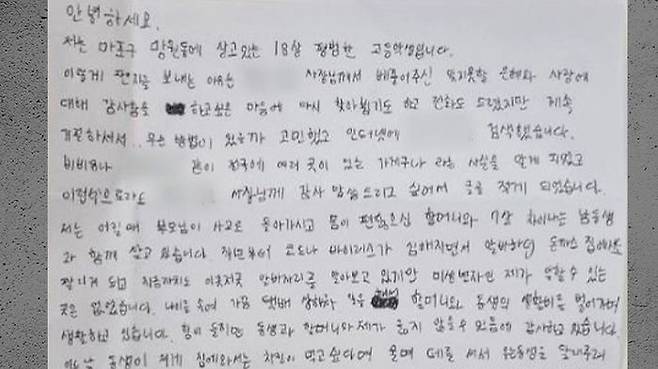 안녕하세요.
저는 마포구 망원동에 살고있는 18살 평범한 고등학생입니다.
이렇게 편지를 보내는 이유는 사장님께서 베풀어주신 잊지못할 은혜와 사랑에
대해 감사함을 하고싶은 마음에 다시 찾아뵙기도 하고 전화도 드렸지만 계속
거절하셔서.. 무슨 방법이 있을까 고민했고 인터넷에 검색했습니다.
비비큐나 같이 전국에 여러 곳이 있는 가게구나 라는 사실을 알게 되었고
이런식으로라도 사장님께 감사 말씀드리고 싶어서 글을 적게 되었습니다.
저는 어릴때 부모님이 사고로 돌아가시고 몸이 편찮으신 할머니와 7살 차이나는 남동생
과 함께 살고 있습니다. 작년부터 코로나 바이러스가 심해지면서 알바하던 돈까스 집에서도
짤리게 되고 지금까지도 이곳저곳 알바자리를 알아보고 있지만 미성년자인 제가 일할 수 있는
곳은 없었습니다. 나이를 속여 가끔 택배 상하차 일을 할머니와 동생의 생활비를 벌어가며
생활하고 있습니다. 힘이 들지만 동생과 할머니와 제가 굶지 않을 수 있음에 감사하고 있습니다.
어느날 동생이 제게 집에와서는 치킨이 먹고싶다며 울며 떼를 써서 우는동생을 달래주려